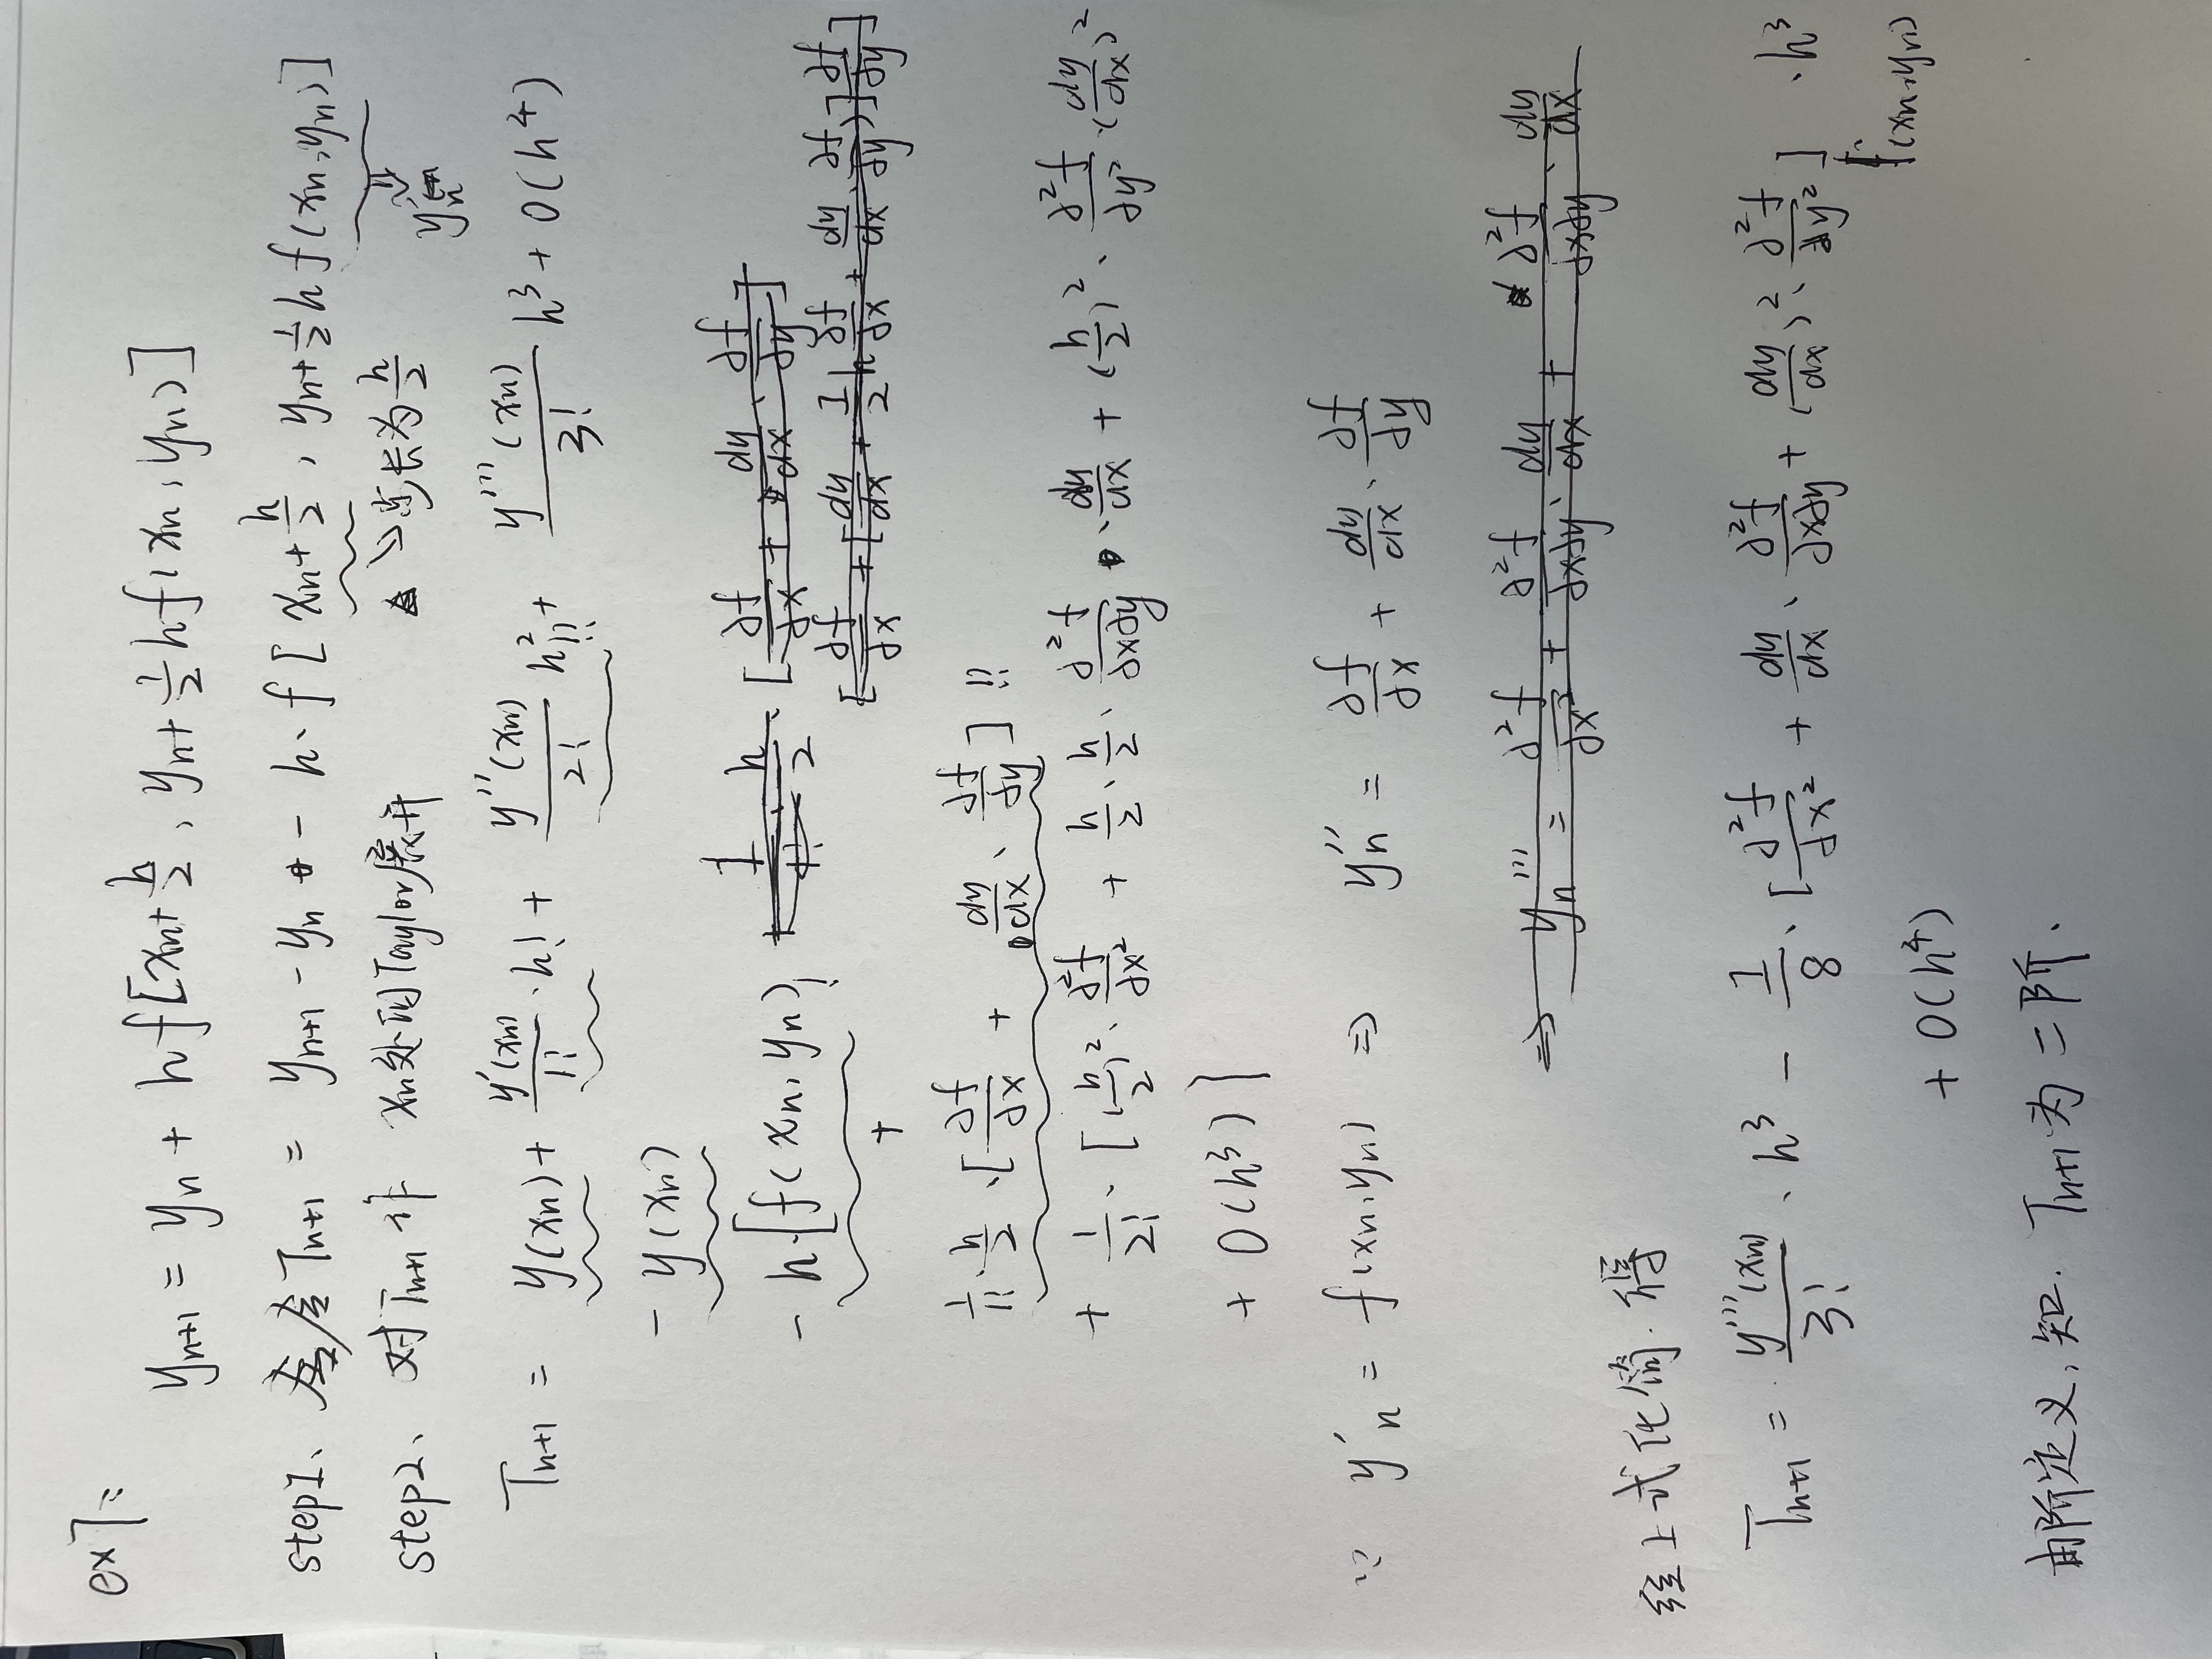 ex7:
y_{n+1} = y_n + h f[x_n + \frac{h}{2}, y_n + \frac{1}{2} h f(x_n, y_n)]
step1、令 T_{n+1} = y_{n+1} - y_n - h · f[x_n + \frac{h}{2}, y_n + \frac{1}{2} h f(x_n, y_n)]
step2、对 T_{n+1} 作 x_n 处的 Taylor 展开 步长为 \frac{h}{2} ⇓ y_n'
T_{n+1} = y(x_n) + \frac{y'(x_n)}{1!} · h ! + \frac{y''(x_n)}{2!} h^2 !! + \frac{y'''(x_n)}{3!} h^3 + O(h^4)
- y(x_n)
- h · [f(x_n, y_n) ! + \frac{1}{1!} · \frac{h}{2} · [\frac{∂f}{∂x} + \frac{dy}{dx} · \frac{∂f}{∂y}]
[\frac{∂f}{∂x} + [\frac{dy}{dx} + \frac{1}{2} h \frac{∂f}{∂x} + \frac{dy}{dx} · \frac{∂f}{∂y})] \frac{∂f}{∂y}]
+
\frac{1}{1!} · \frac{h}{2} · [\frac{∂f}{∂x} + \frac{dy}{dx} · \frac{∂f}{∂y}] !!
+ \frac{1}{2!} · [(\frac{h}{2})^2 · \frac{∂^2f}{∂x^2} + \frac{h}{2} · \frac{h}{2} · \frac{∂^2f}{∂x∂y} · \frac{dy}{dx} + (\frac{h}{2})^2 · \frac{∂^2f}{∂y^2} · (\frac{dy}{dx})^2
+ O(h^3)]
∵ y'_n = f(x_n, y_n) ⇒ y''_n = \frac{∂f}{∂x} + \frac{dy}{dx} · \frac{∂f}{∂y}
⇒ y_n''' = \frac{∂^2f}{∂x^2} + \frac{∂^2f}{∂x∂y} · \frac{dy}{dx} + \frac{∂^2f}{∂x∂y} · \frac{dy}{dx}
经上式化简. 得
T_{n+1} = \frac{y'''(x_n)}{3!} · h^3 - \frac{1}{8} · [\frac{∂^2f}{∂x^2} + \frac{dy}{dx} · \frac{∂^2f}{∂x∂y} + (\frac{dy}{dx})^2 · \frac{∂^2f}{∂y^2}] |_{(x_n, y_n)} · h^3
+ O(h^4)
由阶定义, 知. T_{n+1} 为二阶.